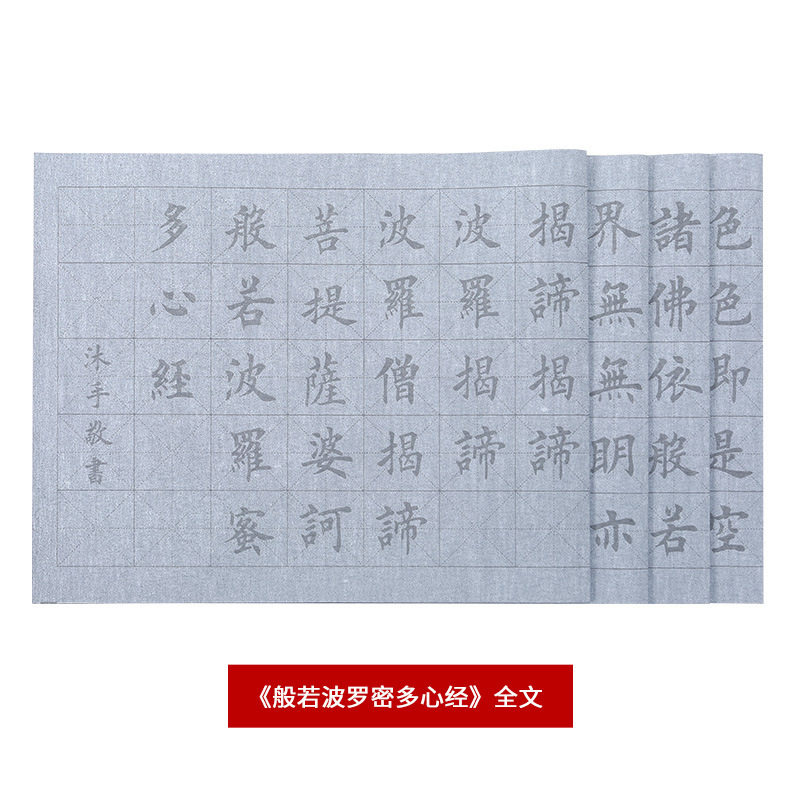 色色即是空
諸佛依般若
界無無明亦
揭諦揭諦
波羅揭諦
波羅僧揭諦
菩提薩婆訶
般若波羅蜜
多心經
沐手敬書
《般若波罗密多心经》全文